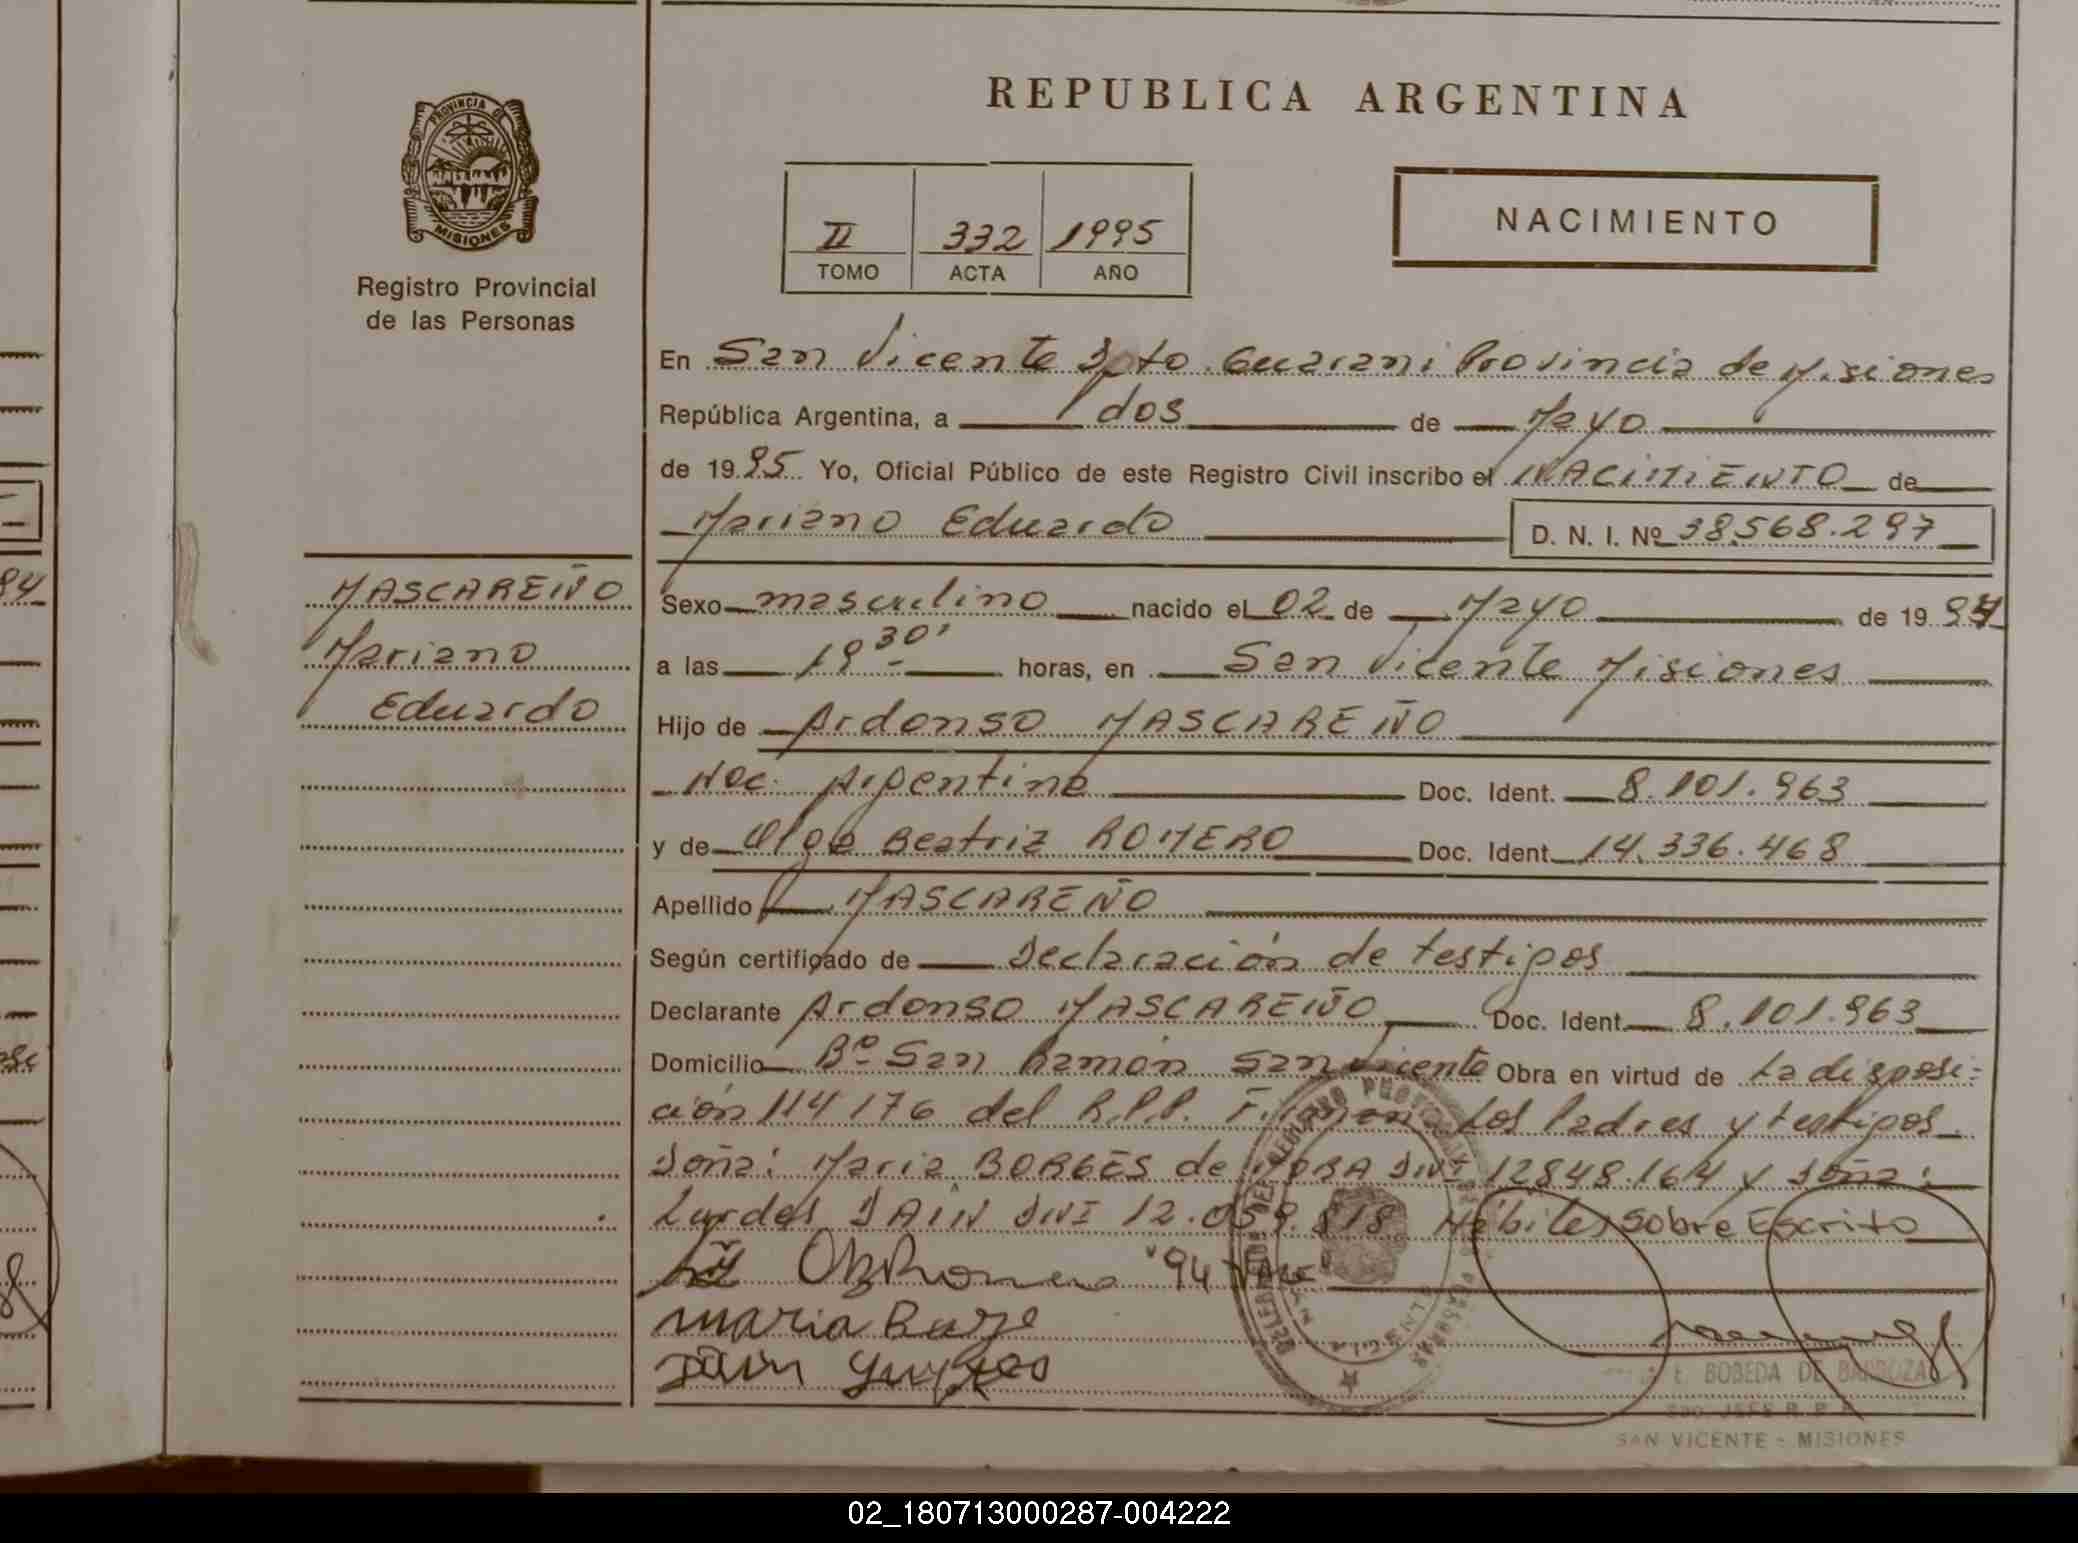 PROVINCIA DE
MISIONES
Registro Provincial
de las Personas
REPUBLICA ARGENTINA
II 332 1995
TOMO ACTA AÑO
NACIMIENTO
En San Vicente Dpto. Guarani Provincia de Misiones
República Argentina, a dos de Mayo
de 1995 Yo, Oficial Público de este Registro Civil inscribo el NACIMIENTO de
Mariano Eduardo D. N. I. Nº 38.568.297
MASCAREÑO
Mariano
Eduardo
Sexo masculino nacido el 02 de Mayo de 1994
a las 19 30' horas, en San Vicente Misiones
Hijo de Ardonso MASCAREÑO
Nac. Argentina Doc. Ident. 8.101.963
y de Olga Beatriz ROMERO Doc. Ident. 14.336.468
Apellido MASCAREÑO
Según certificado de Declaración de testigos
Declarante Ardonso MASCAREÑO Doc. Ident. 8.101.963
Domicilio Bº San Ramón San Vicente Obra en virtud de La disposi-
ción 114176 del R.P.P. Firman Los Padres y testigos
Doña: Maria BORGES de MORA DNI 12848.164 y Doña:
Lurdes DAIN DNI 12.059.818 Hábiles Sobre Escrito
"94 VALE"
maria
Dain
BOBEDA DE BARBOZA
JEFE R. P. P.
SAN VICENTE - MISIONES
84
02_180713000287-004222